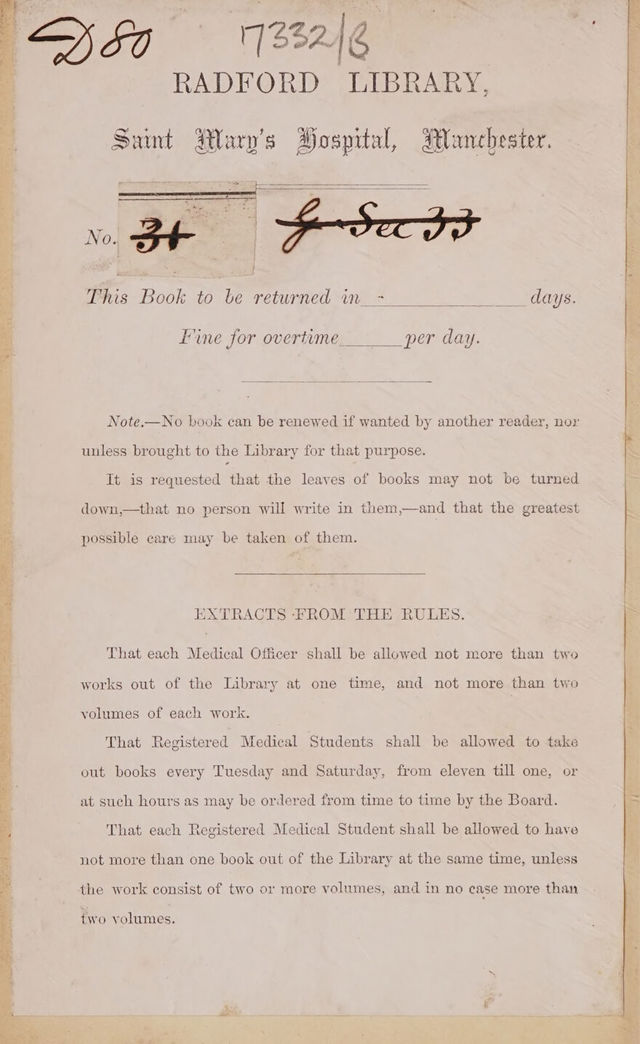 D80 7332/B
RADFORD LIBRARY,
Saint Mary's Hospital, Manchester.
No. 31 G Sec 33
This Book to be returned in - days.
Fine for overtime per day.
Note.—No book can be renewed if wanted by another reader, nor
unless brought to the Library for that purpose.
It is requested that the leaves of books may not be turned
down,—that no person will write in them,—and that the greatest
possible care may be taken of them.
EXTRACTS FROM THE RULES.
That each Medical Officer shall be allowed not more than two
works out of the Library at one time, and not more than two
volumes of each work.
That Registered Medical Students shall be allowed to take
out books every Tuesday and Saturday, from eleven till one, or
at such hours as may be ordered from time to time by the Board.
That each Registered Medical Student shall be allowed to have
not more than one book out of the Library at the same time, unless
the work consist of two or more volumes, and in no case more than
two volumes.